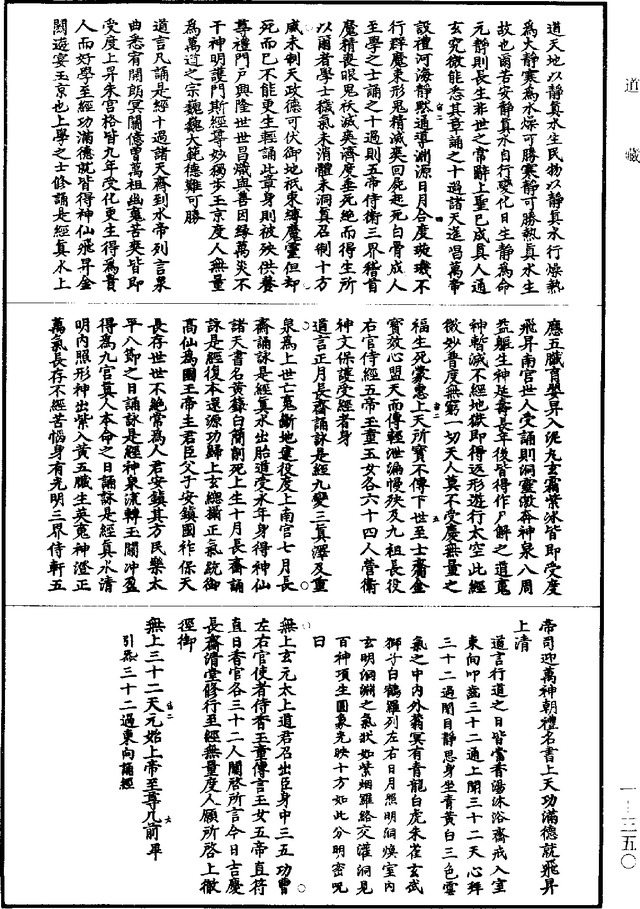 道天地以靜真水生民物以靜真水行燥熱
為大靜寒為水燥可勝寒靜可勝熱真水生
故也爾若安靜真水自行變化日生靜為命
元靜則長生非世之常辭上聖已成真人通
玄究微能悉其章誦之十過諸天遙唱萬帝
設禮河海靜默通導淵源日月合度璇璣不
行群魔束形鬼精滅爽回屍起死白骨成人
至學之士誦之十過則五帝侍衛三界稽首
魔精喪眼鬼袄滅爽濟度垂死絕而得生所
以爾者學士穢氣未消體未洞真召制十方
威未制天政德可伏御地祇束縛魔靈但却
死而已不能更生輕誦此章身則被殃供養
尊禮門戶興隆世世昌熾與善因緣萬災不
干神明護門斯經尊妙獨步玉京度人無量
為萬道之宗巍巍大範德難可勝
道言凡誦是經十過諸天齊到水帝列言泉
曲悉宥開朗冥關億曹萬祖幽冤苦爽皆即
受度上昇朱宮格皆九年受化更生得為貴
人而好學至經功滿德就皆得神仙飛昇金
闕遊宴玉京也上學之士修誦是經真水上
應五臟育嬰昇入泥丸玄霜紫冰皆即受度
飛昇南宮世人受誦則洞靈激奔神泉八周
益軀生神延壽長年後皆得作尸解之道冤
神暫滅不經地獄即得返形遊行太空此經
微妙普度無窮一切天人莫不受慶無量之
福生死蒙惠上天所寶不傳下世至士齎金
寶效心盟天而傳輕泄漏慢殃及九祖長役
右官侍經五帝玉童玉女各六十四人營衛
神文保護受經者身
道言正月長齋誦詠是經九變三真澤及重
泉為上世亡冤斷地連役度上南宮七月長
齋誦詠是經真水出胎道受永年身得神仙
諸天書名黃籙白簡削死上生十月長齋誦
詠是經復本還源功歸上玄總攝正氣統御
高仙為國王帝主君臣父子安鎮國祚保天
長存世世不絕常為人君安鎮其方民樂太
平八節之日誦詠是經神泉流轉玉關沖盈
得為九宮真人本命之日誦詠是經真水清
明內照形神出紫入黃五臟生英冤神澄正
萬氣長存不經苦惱身有光明三界侍軒五
帝司迎萬神朝禮名書上天功滿德就飛昇
上清
道言行道之日皆當香湯沐浴齋戒入室
東向叩齒三十二通上聞三十二天心拜
三十二過閉目靜思身坐青黃白三色雲
氣之中內外蓊冥有青龍白虎朱雀玄武
獅子白鶴羅列左右日月照明洞煥室內
玄明洞淵之氣狀如紫烟羅絡交灌洞見
百神項生圓象光映十方如此分明密呪
曰
無上玄元太上道君召出臣身中三五功曹
左右官使者侍香玉童傳言玉女五帝直符
直日香官各三十二人關啓所言今日吉慶
長齋清堂修行至經無量度人願所啓上徹
徑御
無上三十二天元始上帝至尊几前平
引炁三十二過東向誦經
道藏
一―三五〇